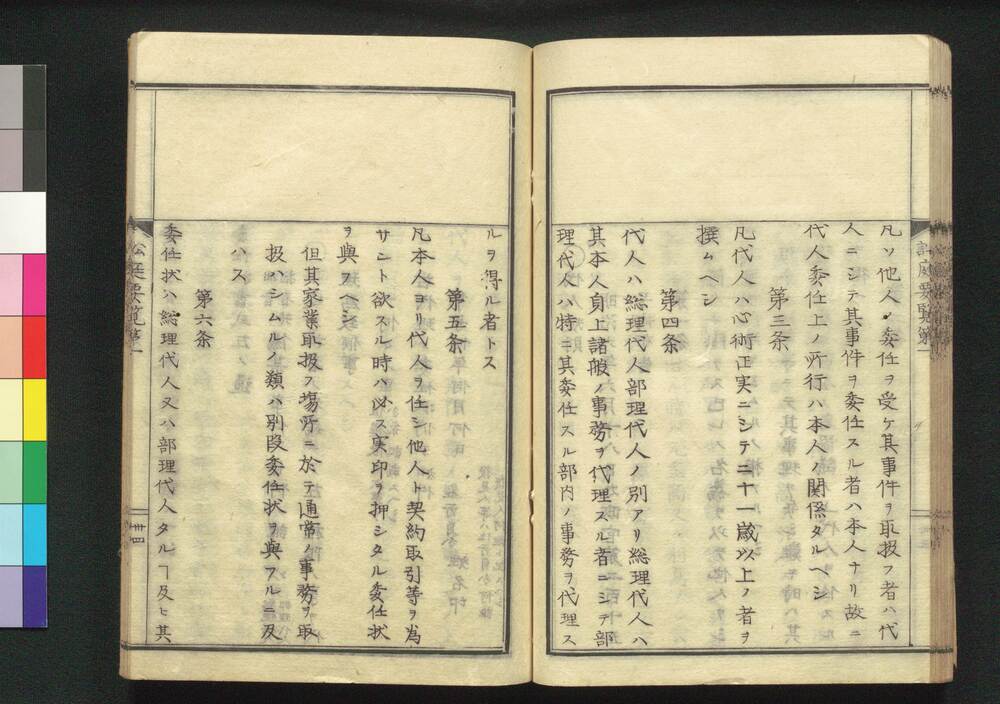 凡ソ他人ノ委任ヲ受ケ其事件ヲ取扱フ者ハ代
人ニシテ其事件ヲ委任スル者ハ本人ナリ故ニ
代人委任上ノ所行ハ本人ノ関係タルヘシ
第三条
凡代人ハ心術正実ニシテ二十一歳以上ノ者ヲ
撰ムヘシ
第四条
代人ハ総理代人部理代人ノ別アリ総理代人ハ
其本人身上諸般ノ事務ヲ代理スル者ニシテ部
理代人ハ特ニ其委任スル部内ノ事務ヲ代理ス
ルヲ得ル者トス
第五条
凡本人ヨリ代人ヲ任シ他人ト契約取引等ヲ為
サント欲スル時ハ必ス実印ヲ押シタル委任状
ヲ與フヘシ
但其家業取扱フ場所ニ於テ通常ノ事務ヲ取
扱ハシムルノ類ハ別段委任状ヲ與フルニ及
ハス
第六条
委任状ハ総理代人又ハ部理代人タルヿ及ヒ其
公廷要覧第一
三十四